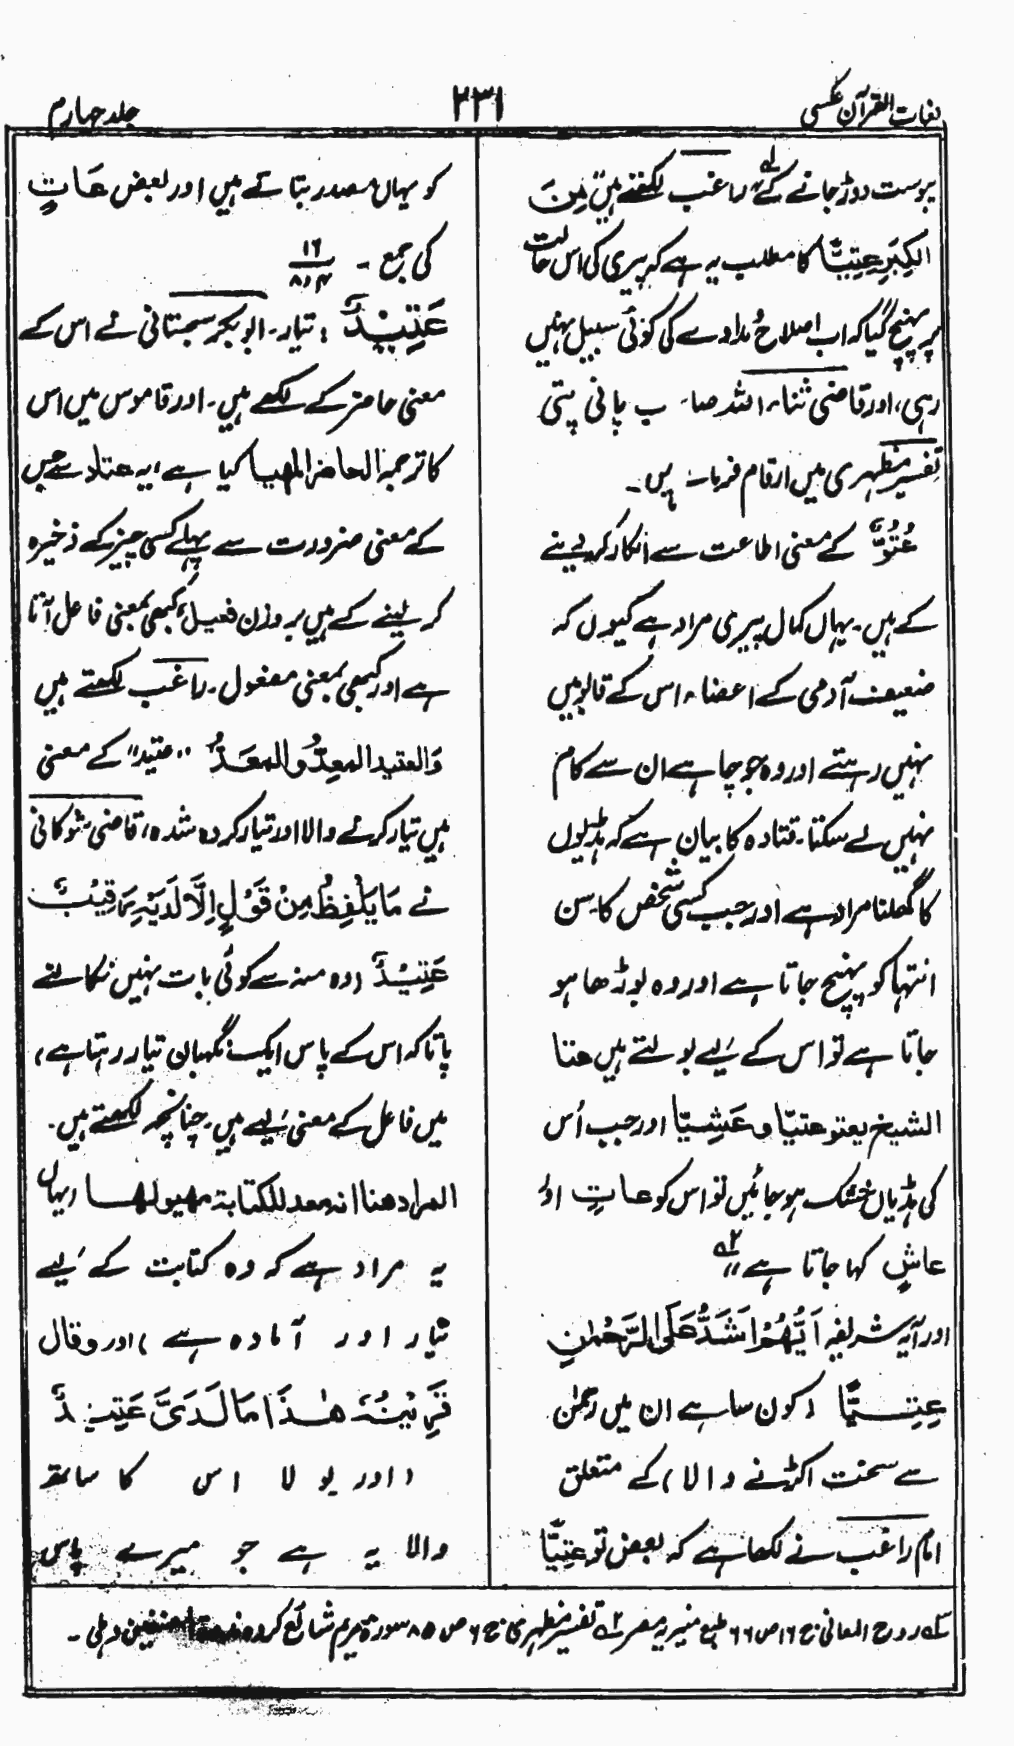 لغات القرآن عکسی
۲۳۱
جلد چہارم
یبوست دوڑ جانے کے لہ راغب لکھتے ہیں مِنَ
الْکِبَرِ عِتِیًّا کا مطلب یہ ہے کہ پیری کی اس حالت
پر پہنچ گیا کہ اب اصلاح و مداوے کی کوئی سبیل نہیں
رہی، اور قاضی ثناء اللہ صاحب پانی پتی
تفسیر مظہری میں ارقام فرماتے ہیں۔
عُتُوٌّ کے معنی اطاعت سے انکار کر دینے
کے ہیں۔ یہاں کمال پیری مراد ہے کیوں کہ
ضعیف آدمی کے اعضاء اس کے قابو میں
نہیں رہتے اور وہ جو چاہے ان سے کام
نہیں لے سکتا۔ قتادہ کا بیان ہے کہ ہڈیوں
کا گھلنا مراد ہے اور جب کسی شخص کا سن
انتہا کو پہنچ جاتا ہے اور وہ بوڑھا ہو
جاتا ہے تو اس کے لیے بولتے ہیں عتا
الشیخ یعتو عتیّا و عَشِیّا اور جب اُس
کی ہڈیاں خشک ہو جائیں تو اس کو عاتٍ اور
عاسٍ کہا جاتا ہے ۲ہ
اور آیہ شریفہ اَیُّهُمْ اَشَدُّ عَلَی الرَّحْمٰنِ
عِتِیًّا (کون سا ہے ان میں رحمٰن
سے سخت اکڑنے والا) کے متعلق
امام راغب نے لکھا ہے کہ بعض تو عِتِیًّا
کو یہاں مصدر بتاتے ہیں اور بعض عَاتٍ
کی جمع ۔ ۱۶
۸،۴
عَتِیْدٌ : تیار۔ ابو بکر سجستانی نے اس کے
معنی حاضر کے لکھے ہیں۔ اور قاموس میں اس
کا ترجمہ الحاضر المهیا کیا ہے، یہ عتاد سے جس
کے معنی ضرورت سے پہلے کسی چیز کے ذخیرہ
کر لینے کے ہیں بر وزن فعیل، کبھی بمعنی فاعل آتا
ہے اور کبھی بمعنی مفعول۔ راغب لکھتے ہیں
وَالعتید المعِدُّ والمعَدُّ "عتید" کے معنی
ہیں تیار کرنے والا اور تیار کردہ شدہ، قاضی شوکانی
نے مَا یَلْفِظُ مِنْ قَوْلٍ اِلَّا لَدَیْہِ رَقِیْبٌ
عَتِیْدٌ (وہ منہ سے کوئی بات نہیں نکالنے
پاتا کہ اس کے پاس ایک نگہبان تیار رہتا ہے)
میں فاعل کے معنی لیے ہیں۔ چنانچہ لکھتے ہیں۔
المراد هنا انه معد للکتابة مهیو لها (یہاں
یہ مراد ہے کہ وہ کتابت کے لیے
تیار اور آمادہ ہے) اور وقال
قَرِیْنُهٗ هٰذَا مَا لَدَیَّ عَتِیْدٌ
(اور بولا اس کا ساتھ
والا یہ ہے جو میرے پاس
۱ہ روح المعانی ج ۱۶ ص ۶۶ طبع منیریہ مصر ۲ہ تفسیر مظہری ج ۶ ص ۸۵ سورۃ مریم شائع کردہ ندوۃ المصنفین دہلی۔